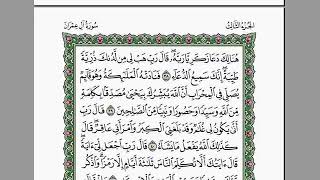 الجزء الثالث
سورة آل عمران
هُنَالِكَ دَعَا زَكَرِيَّا رَبَّهُۥ ۖ قَالَ رَبِّ هَبْ لِى مِن لَّدُنكَ ذُرِّيَّةً
طَيِّبَةً ۖ إِنَّكَ سَمِيعُ ٱلدُّعَآءِ ۝٣٨ فَنَادَتْهُ ٱلْمَلَـٰٓئِكَةُ وَهُوَ قَآئِمٌ
يُصَلِّى فِى ٱلْمِحْرَابِ أَنَّ ٱللَّهَ يُبَشِّرُكَ بِيَحْيَىٰ مُصَدِّقًۢا بِكَلِمَةٍ
مِّنَ ٱللَّهِ وَسَيِّدًا وَحَصُورًا وَنَبِيًّا مِّنَ ٱلصَّـٰلِحِينَ ۝٣٩ قَالَ رَبِّ
أَنَّىٰ يَكُونُ لِى غُلَـٰمٌ وَقَدْ بَلَغَنِىَ ٱلْكِبَرُ وَٱمْرَأَتِى عَاقِرٌ ۖ قَالَ
كَذَٰلِكَ ٱللَّهُ يَفْعَلُ مَا يَشَآءُ ۝٤٠ قَالَ رَبِّ ٱجْعَل لِّىٓ ءَايَةً ۖ
قَالَ ءَايَتُكَ أَلَّا تُكَلِّمَ ٱلنَّاسَ ثَلَـٰثَةَ أَيَّامٍ إِلَّا رَمْزًا ۗ وَٱذْكُر